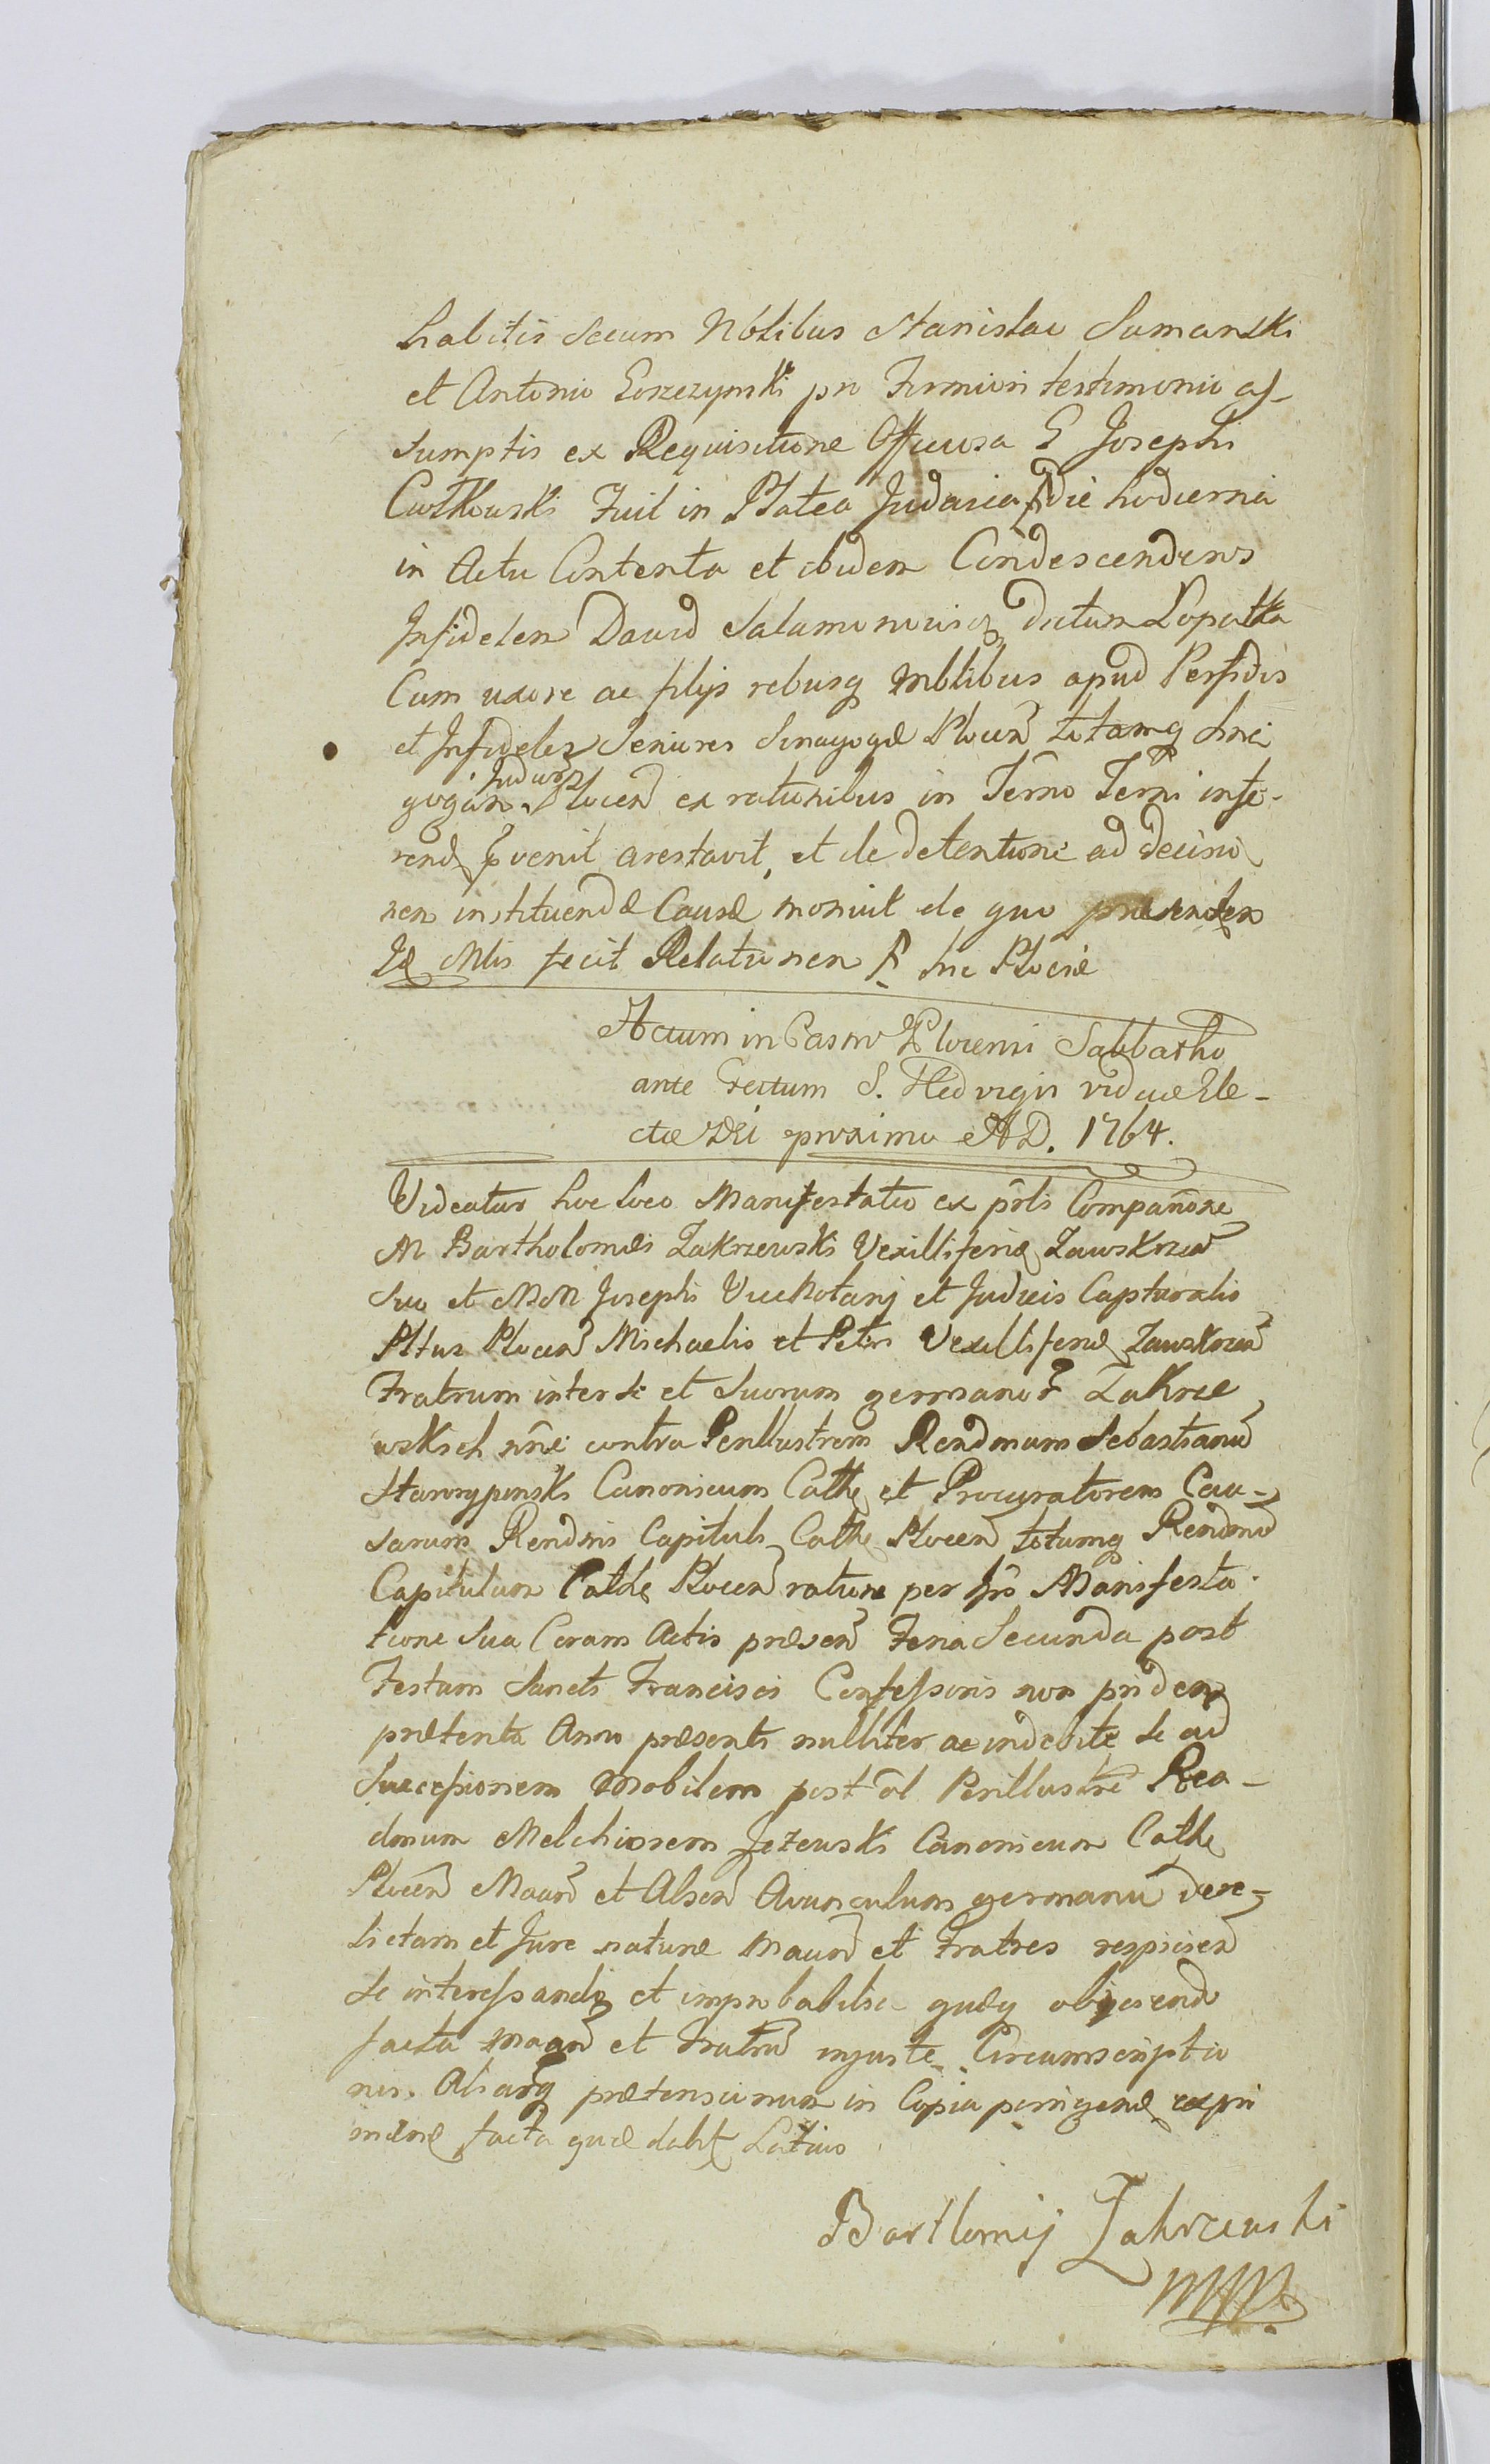 habitis secum Nblibus Stanislao Sumanski
et Antonio Gorzezynski pro Firmiori testimonio as-
sumptis ex Requisitione Officiosa G Josephi
Cwitkowski Fuit in Platea Judaica die hodierna
in Actu Contenta et ibidem Condescendens
Infidelem David Salamonowicz dictum Lopatka
Cum uxore ac filijs rebusq mblibus apud Perfidis
et Infideles Seniores Sinagogæ Plocen totamq Sina
gogam Judæor Plocen ex rationibus in Termo Termi infe-
rend pvenit arestavit, et de detentione ad decisio
nem instituendæ Causæ monuit de quo præsentem
Id Mlis fecit Relationem hic Plociæ
Actum in Castro Plocensi Sabbatho
ante Festum S. Hedvigis viduæ Ele-
ctæ DEi proximo AD. 1764.
Videatur hoc Loco Manifestatio ex prsli Compañone
M Bartholomæi Zakrzewski Vexilliferid Zawskrzen
Suo et MM Josephi ViceNotarij et Judicis Capturalis
Pltus Plocen Michaelis et Petri Vexilliferid Zawskrzen
Fratrum inter se et Suorum germanor Zakrze
wskich nñe contra Perillustrem Rendmum Sebastianu
Staroszpinski Canonicum Cathe et Procuratorem Cau-
sarum Rendmi Capituli Cathe Plocen totumq Rendmu
Capitulum Cathe Plocen ratione per hos Manifesta-
tione Sua Coram Actis præsen Feria Secunda post
Festum Sancti Francisci Confessoris non pridem
prætenta Anno præsenti nulliter ac indebite se ad
Successionem Mobilem post ol Perillustre Ren-
dmum Melchiorem Jeżewski Canonicum Cathe
Plocen Maan et Alsen Avunculum germanu dere-
lictam et Jure naturæ Maan et Fratres respicien
se interessandi et improbabilia quæq objiciendo
facta Maan et Fratru injuste Circumscriptio
nis. Aliarq prætensionum in Copia porrigend expri
mend facta quæ dabit Latius
Bartłomiej Zakrzewski
mpp.